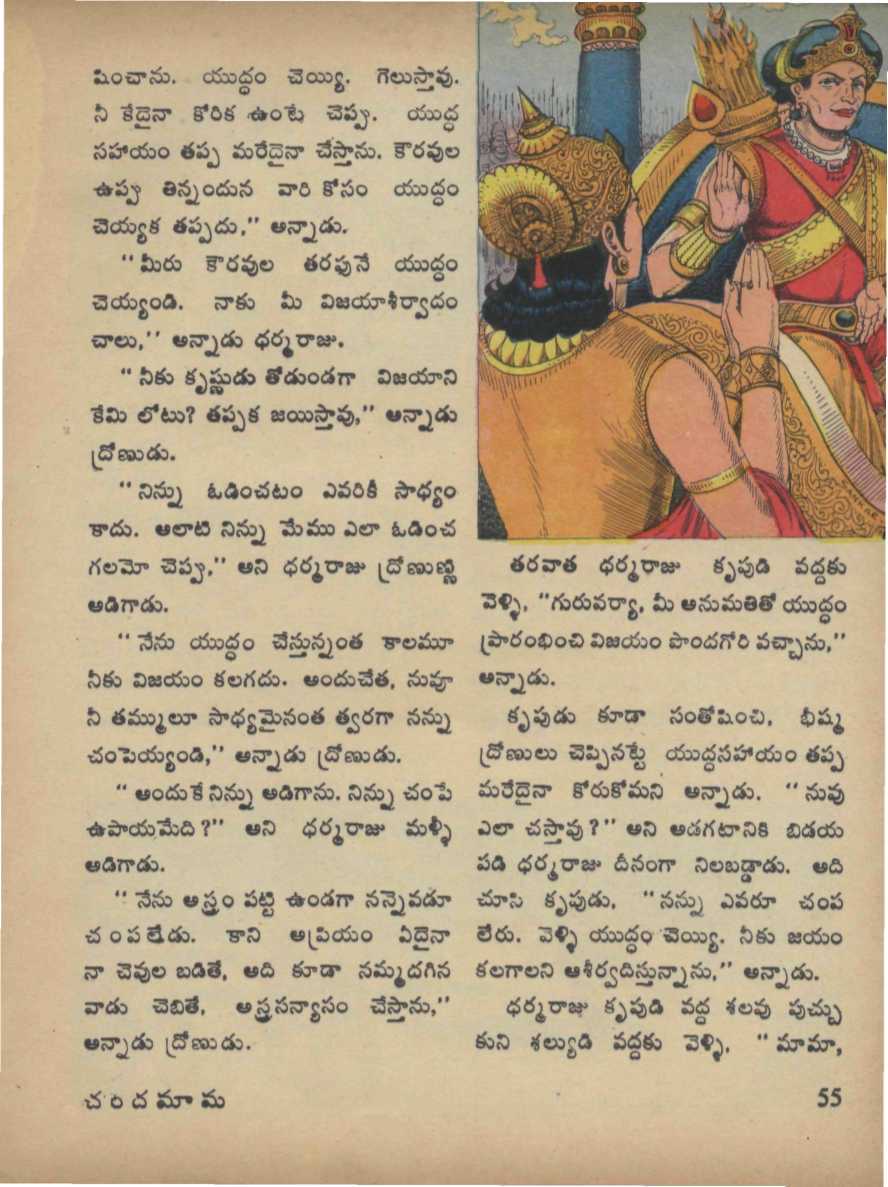 షించాను. యుద్ధం చెయ్యి. గెలుస్తావు.
నీ కేదైనా కోరిక ఉంటే చెప్పు. యుద్ధ
సహాయం తప్ప మరేదైనా చేస్తాను. కౌరవుల
ఉప్పు తిన్నందున వారి కోసం యుద్ధం
చెయ్యక తప్పదు,'' అన్నాడు.
''మీరు కౌరవుల తరఫునే యుద్ధం
చెయ్యండి. నాకు మీ విజయాశీర్వాదం
చాలు,'' అన్నాడు ధర్మరాజు.
''నీకు కృష్ణుడు తోడుండగా విజయాని
కేమి లోటు? తప్పక జయిస్తావు,'' అన్నాడు
ద్రోణుడు.
''నిన్ను ఓడించటం ఎవరికీ సాధ్యం
కాదు. అలాటి నిన్ను మేము ఎలా ఓడించ
గలమో చెప్పు,'' అని ధర్మరాజు ద్రోణుణ్ణి
అడిగాడు.
''నేను యుద్ధం చేస్తున్నంత కాలమూ
నీకు విజయం కలగదు. అందుచేత, నువూ
నీ తమ్ములూ సాధ్యమైనంత త్వరగా నన్ను
చంపెయ్యండి,'' అన్నాడు ద్రోణుడు.
''అందుకే నిన్ను అడిగాను. నిన్ను చంపే
ఉపాయమేది?'' అని ధర్మరాజు మళ్ళీ
అడిగాడు.
''నేను అస్త్రం పట్టి ఉండగా నన్నెవడూ
చంపలేడు. కాని అప్రియం ఏదైనా
నా చెవుల బడితే, అది కూడా నమ్మదగిన
వాడు చెబితే, అస్త్రసన్యాసం చేస్తాను,''
అన్నాడు ద్రోణుడు.
తరవాత ధర్మరాజు కృపుడి వద్దకు
వెళ్ళి, ''గురువర్యా, మీ అనుమతితో యుద్ధం
ప్రారంభించి విజయం పొందగోరి వచ్చాను,''
అన్నాడు.
కృపుడు కూడా సంతోషించి, భీష్మ
ద్రోణులు చెప్పినట్టే యుద్ధసహాయం తప్ప
మరేదైనా కోరుకోమని అన్నాడు. ''నువు
ఎలా చస్తావు?'' అని అడగటానికి బిడయ
పడి ధర్మరాజు దీనంగా నిలబడ్డాడు. అది
చూసి కృపుడు, ''నన్ను ఎవరూ చంప
లేరు. వెళ్ళి యుద్ధం చెయ్యి. నీకు జయం
కలగాలని ఆశీర్వదిస్తున్నాను,'' అన్నాడు.
ధర్మరాజు కృపుడి వద్ద శలవు పుచ్చు
కుని శల్యుడి వద్దకు వెళ్ళి, ''మామా,
చందమామ
55